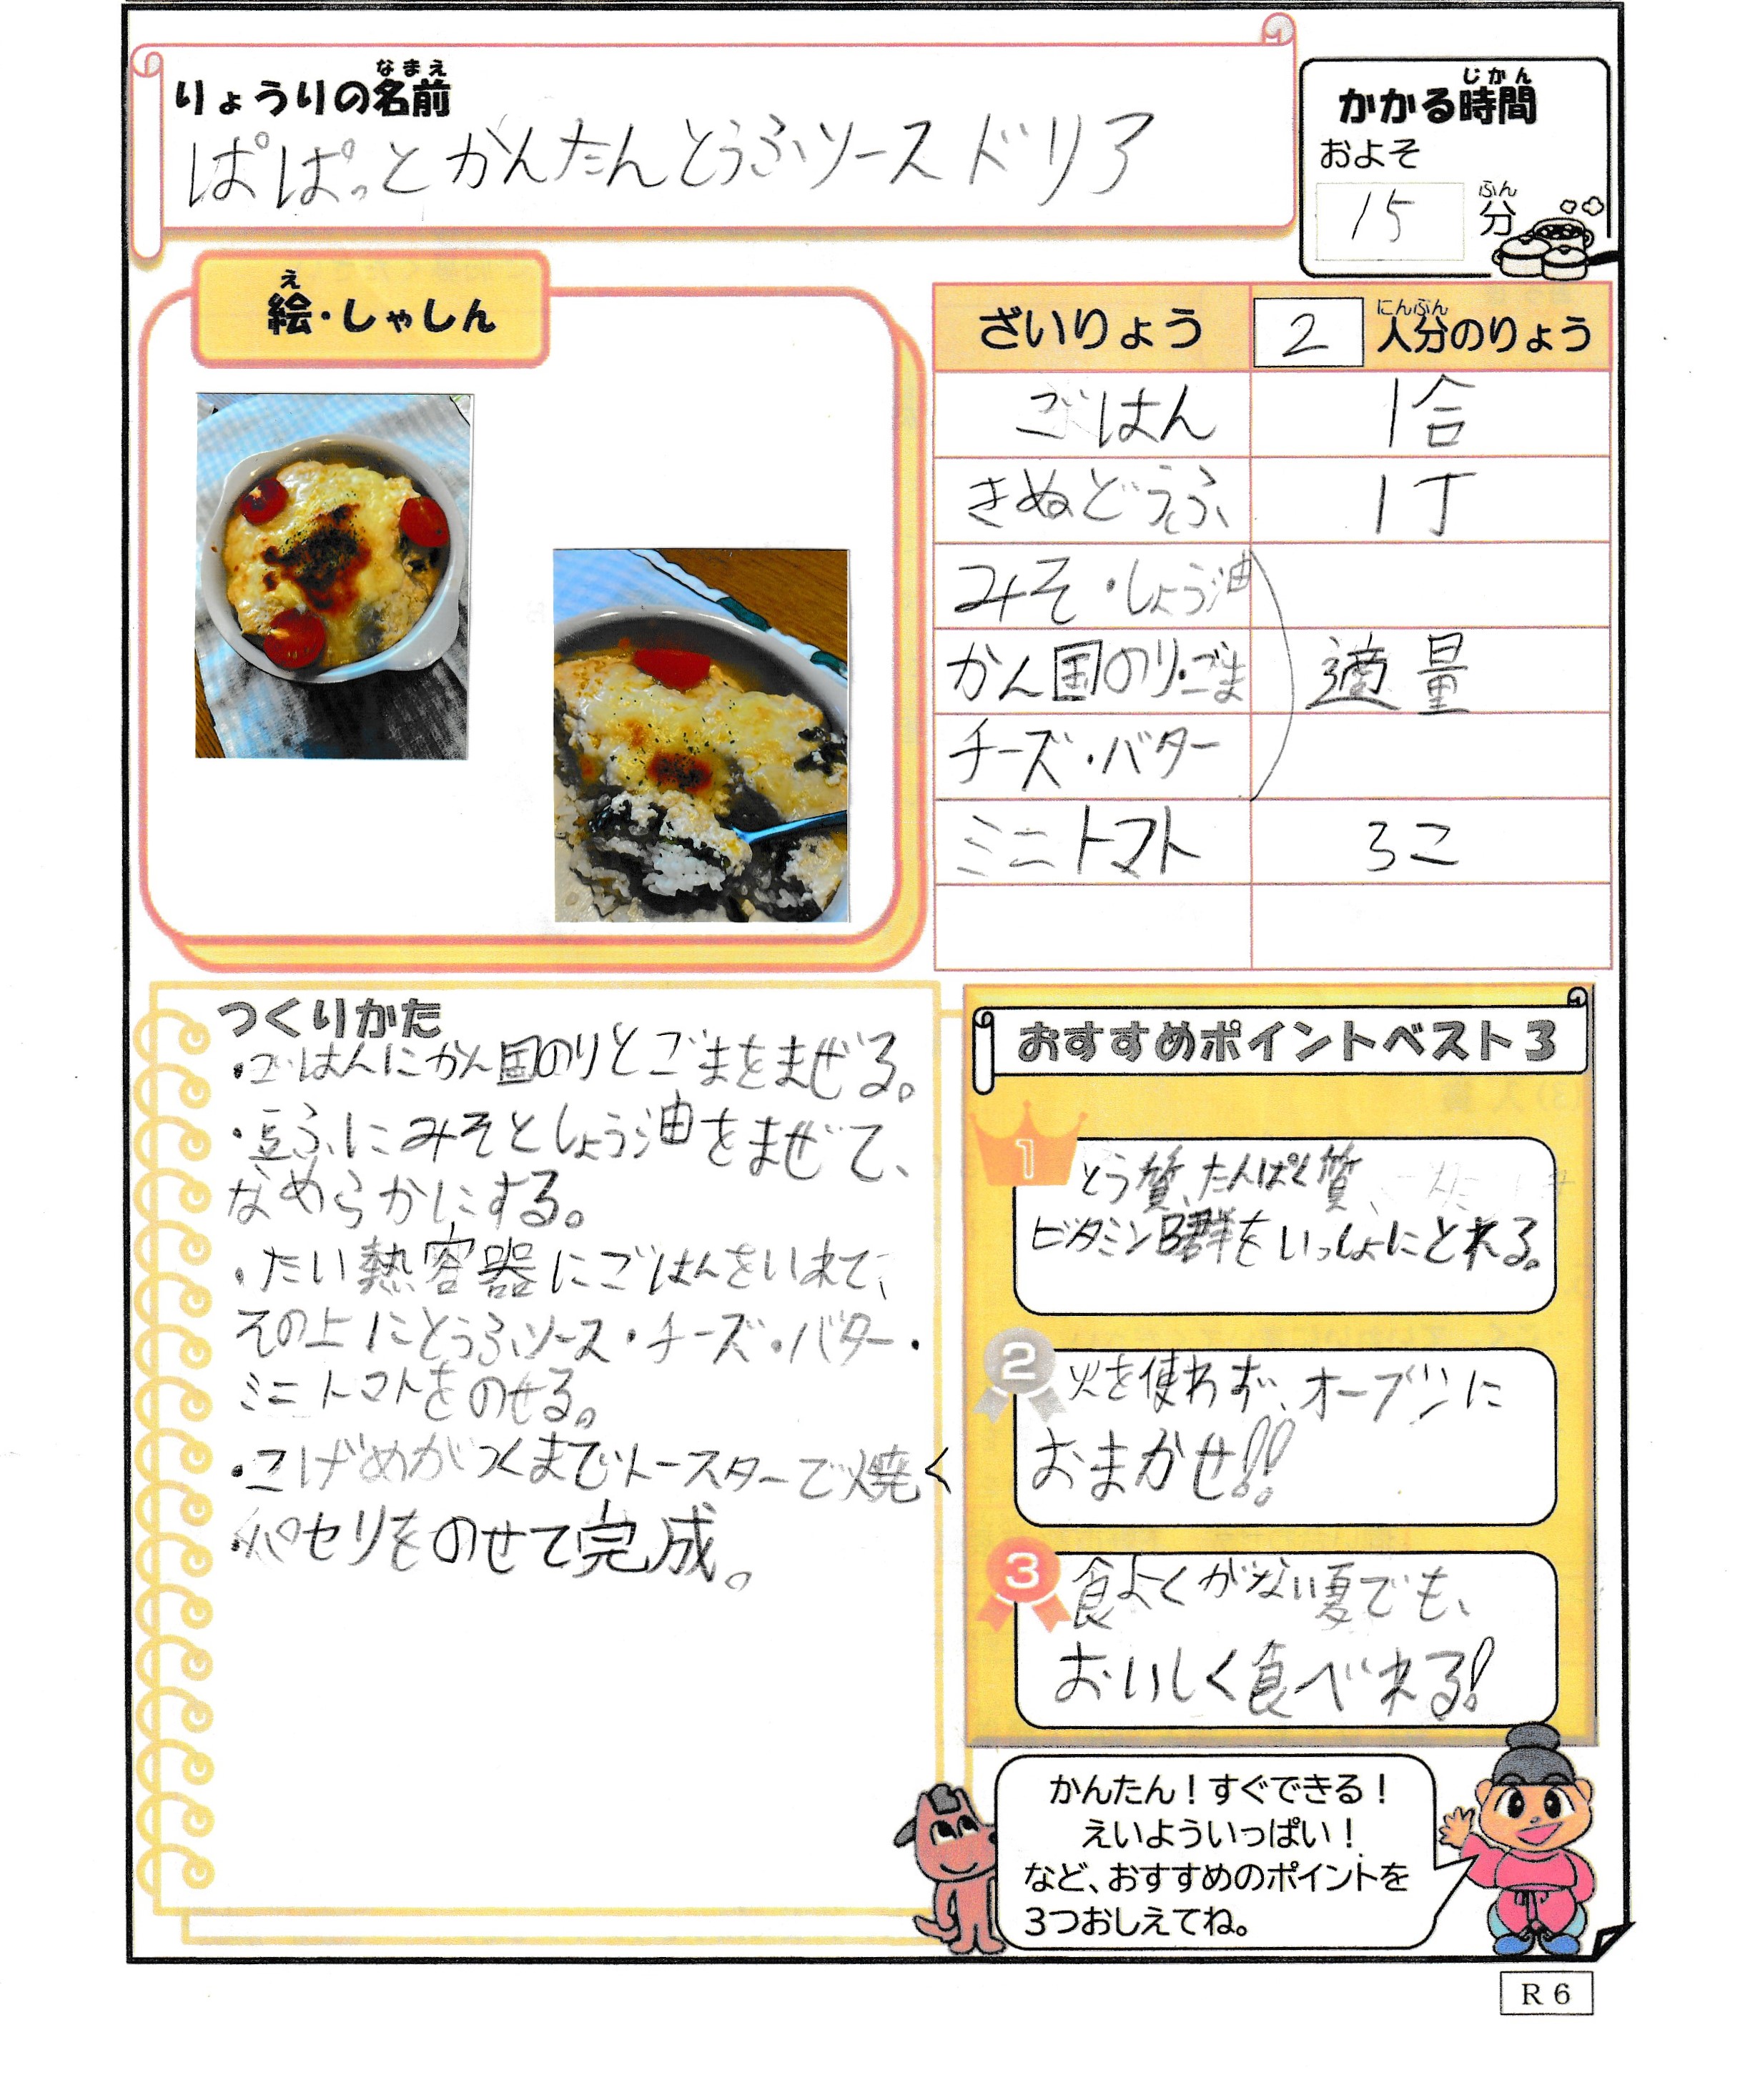 りょうりの名前
なまえ
ぱぱっとかんたんとうふソースドリア
かかる時間
じかん
およそ
15
分
ふん
絵・しゃしん
え
ざいりょう 2 人分のりょう
にんぶん
ごはん 1合
きぬどうふ 1丁
みそ・しょう油
かん国のり・ごま 適量
チーズ・バター
ミニトマト 3こ
つくりかた
・ごはんにかん国のりとごまをまぜる。
・豆ふにみそとしょう油をまぜて、
なめらかにする。
・たい熱容器にごはんをいれて、
その上にとうふソース・チーズ・バター・
ミニトマトをのせる。
・こげめがつくまでトースターで焼く
・パセリをのせて完成。
おすすめポイントベスト3
1
とう質、たんぱく質、
ビタミンB群をいっしょにとれる。
2
火を使わず、オーブンに
おまかせ!!
3
食よくがない夏でも、
おいしく食べれる!
かんたん！すぐできる！
えいよういっぱい！
など、おすすめのポイントを
3つおしえてね。
R6